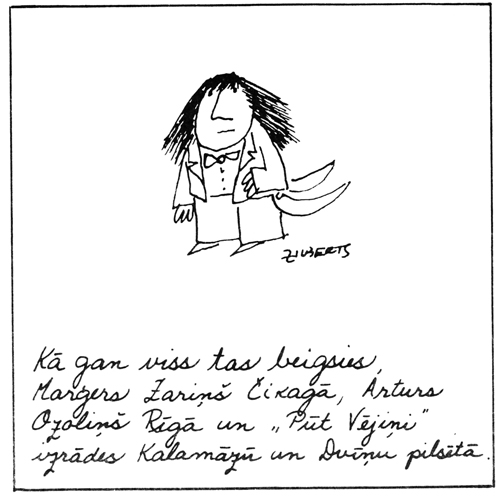 ZILBERTS
Kā gan viss tas beigsies,
Marģers Zariņš Čikagā, Arturs
Ozoliņš Rīgā un „Pūt Vējiņi”
izrādes Kalamāzū un Dvīņu pilsētā.